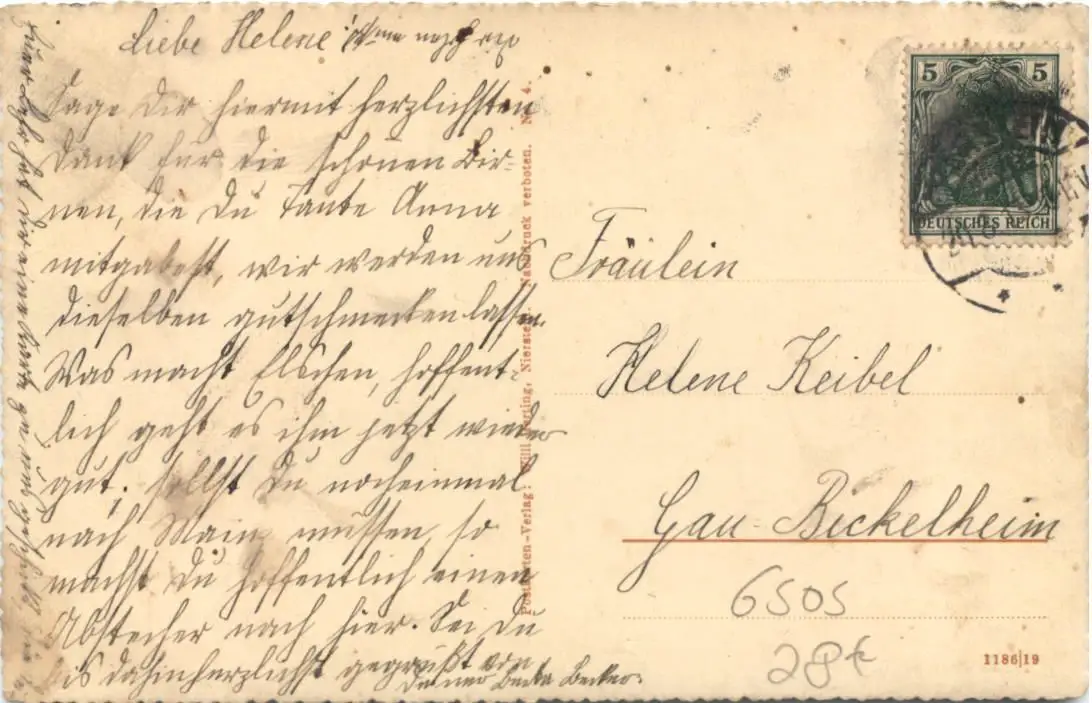 Liebe Helene!
Sage Dir hiermit herzlichsten
Dank für die schönen Bir-
nen, die Du Tante Anna
mitgabest, wir werden uns
dieselben gutschmecken lassen.
Was macht Elschen, hoffent-
lich geht es ihm jetzt wieder
gut; sollst Du nocheinmal
nach Mainz müssen, so
machst Du hoffentlich einen
Abstecher nach hier. Sei Du
bis dahin herzlichst gegrüßt von
Deiner Becker.
Postkarten-Verlag: Nierstein. Nachdruck verboten. No. 4.
5 5
DEUTSCHES REICH
Fräulein
Helene Keibel
Gau-Bickelheim
6505
28€
1186|19